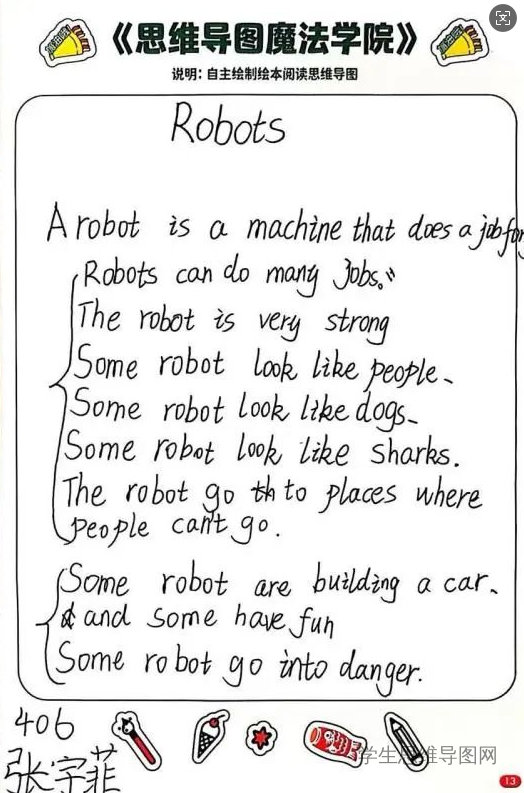 《思维导图魔法学院》
说明：自主绘制绘本阅读思维导图
Robots
A robot is a machine that does a job for
Robots can do many Jobs。"
The robot is very strong
Some robot look like people、
Some robot look like dogs、
Some robot look like sharks.
The robot go th to places where
people can't go.
Some robot are building a car、
and some have fun
Some robot go into danger.
406
张宇菲
学生思维导图网
13